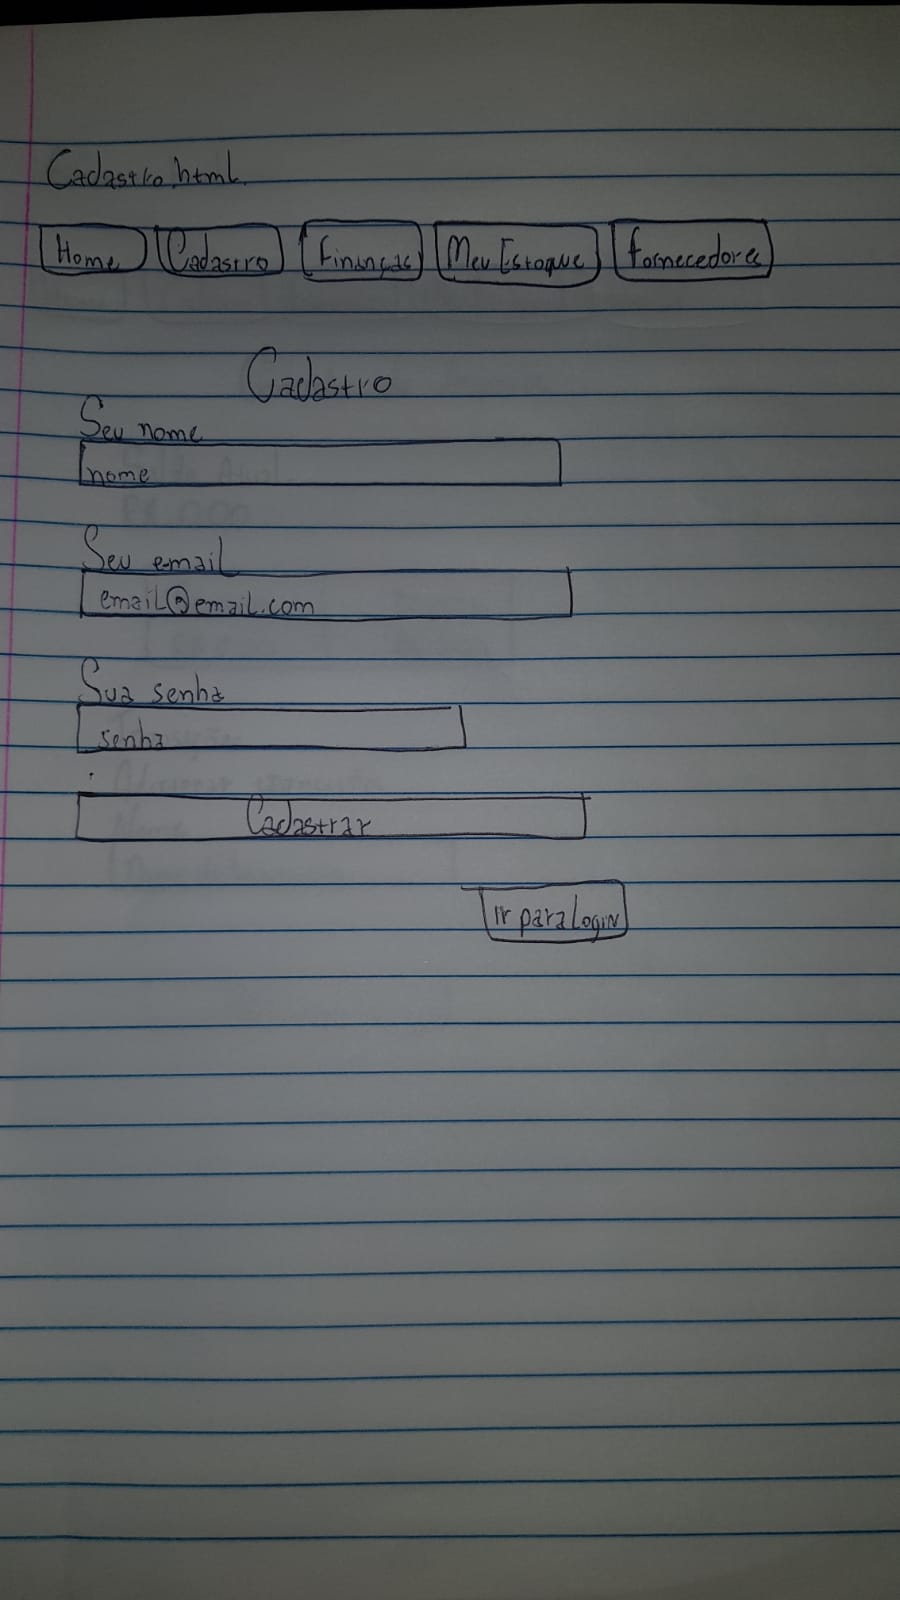 Cadastro.html
Home Cadastro Finanças Meu Estoque Fornecedores
Cadastro
Seu nome
nome
Seu email
email@email.com
Sua senha
senha
Cadastrar
Ir para Login